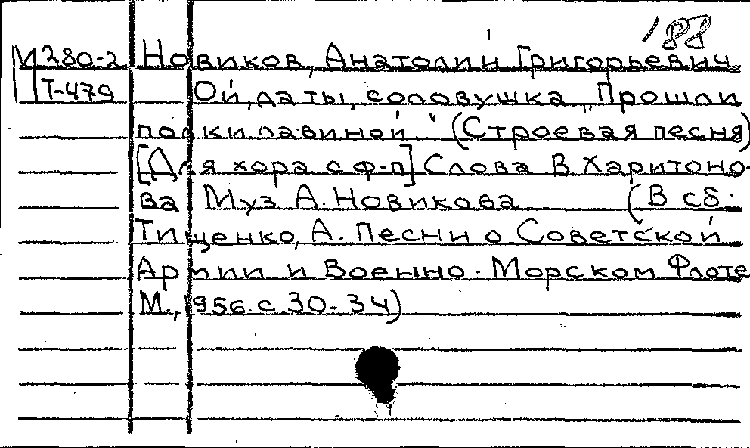 188
М380-2 Новиков, Анатолий Григорьевич
Т-479 Ой, да ты, соловушка „Прошли
полки лавиной" (Строевая песня)
[Для хора с ф-п] Слова В. Харитоно-
ва Муз А. Новикова (В сб.
Тищенко, А. Песни о Советской
Армии и Военно-Морском Флоте
М., 1956. с. 30-34)